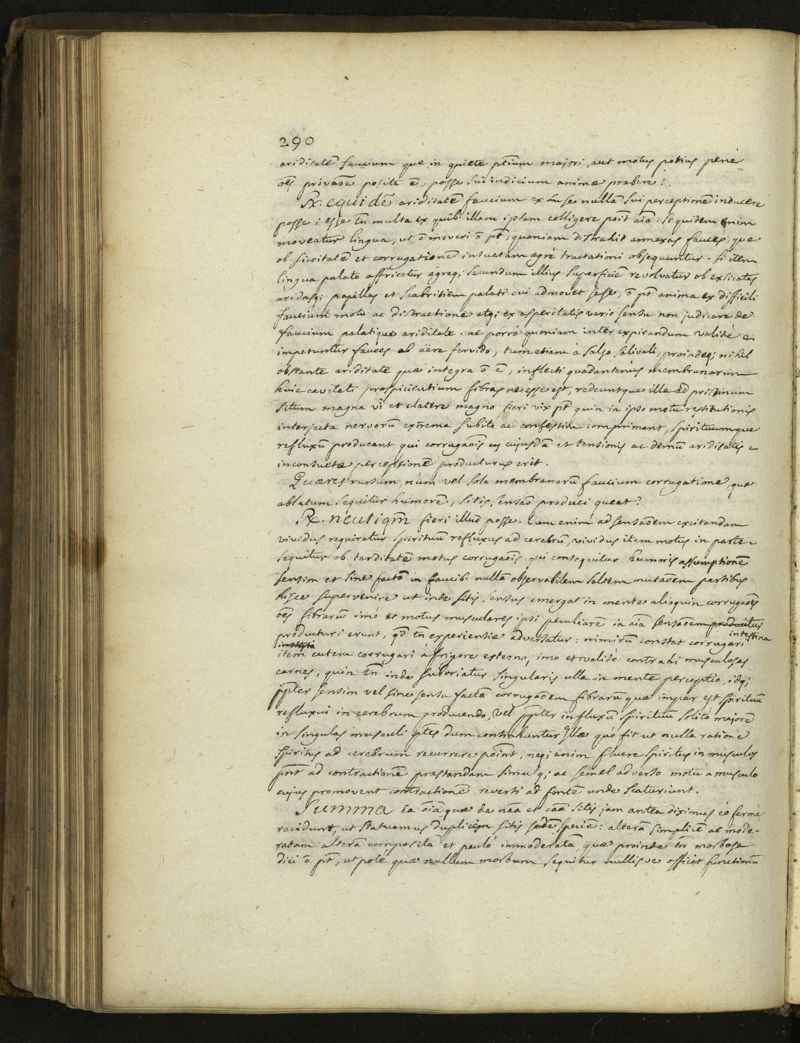 290
ariditatē faucium quæ in quiete ptium majori, aut motus potius penè
oēs privaoe posita ē, posse sui indicium animæ præbere?
℞. equidē ariditatē faucium ex se nullā sui perceptionē inducere
posse; esse tn̄ multa ex quib. illam ipsam colligere poīt aīa. Siquidem enim
moveatur lingua, ut ō moveri ō pt̄, quoniam distrahit annexas fauces, quæ
ob siccitatē et corrugationē insuetam ægrè tractationi obsequuntur. Si item
lingua palato affricetur ejusq; secundum illius superficiē revolvatur ob exsicatas
aridasq; papillas et scabritiem palati cui admovet sese, ō pt̄ anima ex difficili
faucium motu ac distractione atq; ex asperitatis vario sensu non judicare de
faucium palatique ariditate. ac porrò quoniam inter expirandum validè
impetuntur fauces ab aëre fervido, tum etiam à salso, salivali, proindeq; nihil
obstante ariditate quæ integra ō ē, inflecti quadantenus membranarum
huic cavitati prospicientium fibras necesse est, redeuntque illæ ad pristinum
situm magna vi et elatere magno fieri vix pt̄ quin in ipso motu restitutionis
interjecta nervorū extrema subito ac confestim comprimant, spirituumque
refluxū producant qui corrugaōis ejusdē et tensionis ac demū ariditatis
inconsuetæ perceptionē producturus erit.
Quæres rursum, num vel sola membranarū faucium corrugatione, quæ
ablatum sequitur humorē, sitis sensāo produci queat?
℞. neutiqm̄ fieri illud posse. Cum enim ad sensāōem excitandam
vividus requiratur spirituū refluxus ad cerebrū, vividus item motus in parte
sequitur ob tarditatē motus corrugaōis, qui consequitur humoris assumptionē
sensim et sine factā in faucib. nullā observabilem saltem mutaōem partibus
hisce supervenire ut inde sitis sensus emergat in mente alioquin corrugaōēs
oēs fibrarū imò et motus musculares ipsi peculiarē in aīa sensāōem
producturi erunt, qd̄ tn̄ experientiæ adversatur: nimirū constat corrugari, intestina
item cutem corrugari à frigore externo, imo et valido contrahi musculosas
carnes, quin tn̄ inde suboriatur singularis ulla in mente perceptio, idq;
ppter sensim vel sine sensu factā corrugāōem fibrarū quæ impar est spirituū
refluxui in cerebrum producendo, vel ppter influxū spirituū solitò majorē
in singulas musculi ptes dum contrahuntur illæ quo fit ut nulla ratione
spiritus ad cerebrum recurrere poīnt, neq; enim fluere spiritus in musculos
pnt ad contractionē præstandam simulq; ac semel adverso motu à musculo
cujus promovent contractionē reverti ad fontē unde scaturiunt.
Summa Ea oīa quæ de naā et caā sitis jam antea diximus eò fermè
recidunt, ut statuamus duplicem sitis speciē: alterā simplicē ac mode-
ratam alterā compositā et paulò immoderatā, quæ proinde tn̄ morbosa
dici ō pt̄, utpote quæ nullum morbum sequitur nullisve officit functionū